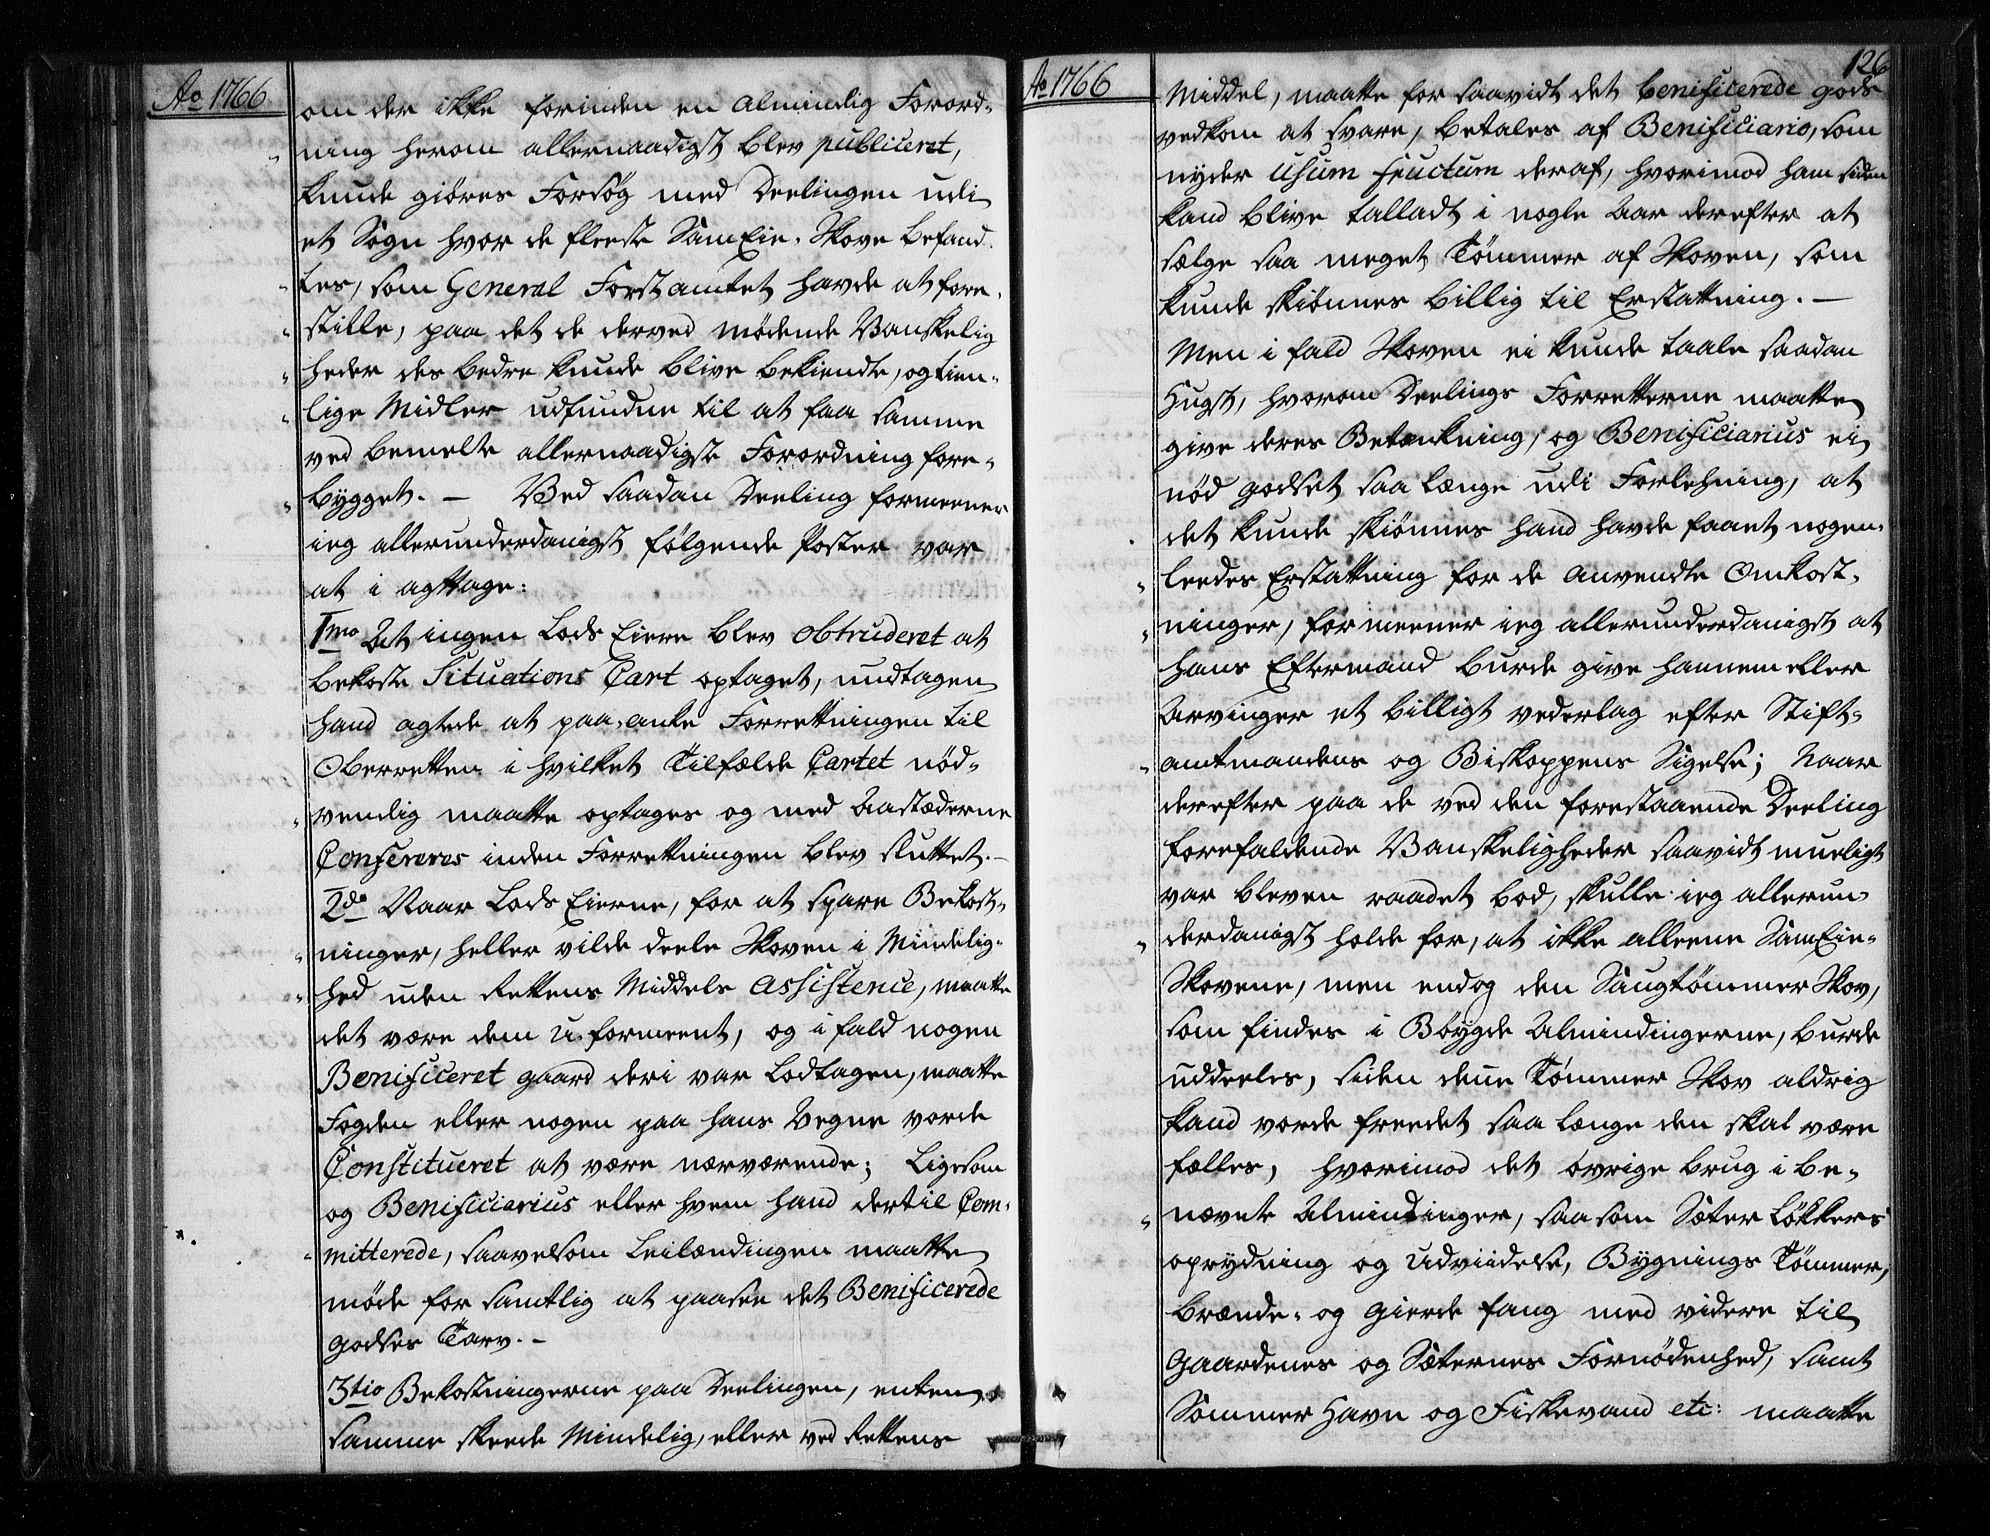 Ao 1766
om der ikke forinden en Almindelig Forord-
ning herom allernaadigst blev publiceret,
kunde giöres Forsög med Deelingen udi
et Sogn hvor de fleeste SamEie-Skove befand-
tes, som General Forst amtet havde at fore-
stille, paa det de derved mödende Vanskelig
heder des bedre kunde blive bekiendte, og tien-
lige Midler udfundne til at faa samme
ved bemelte allernaadigste Forordning fore-
bygget. — Ved saadan Deeling formeener
ieg allerunderdanigst fölgende Poster var
at i agttage:
1mo At ingen Lods Eiere blev obtruderet at
bekoste Situations Cart optaget, undtagen
hand agtede at paa-anke Forretningen til
Oberretten i hvilket Tilfælde Cartet nöd-
vendig maatte optages og med Aastæderne
Confereres inden Forretningen blev sluttet.—
2do Naar Lods Eierne, for at spare Bekost-
ninger, heller vilde deele Skoven i Mindelig-
hed uden Rettens Middels Assistence, maatte
det være dem u-formeent, og i fald nogen
Benificeret gaard deri var Lodtagen, maatte
Fogden eller nogen paa hans Vegne vorde
Constitueret at være nærværende; Ligesom
og Benificiarius eller hvem hand dertil Com-
mitterede, saavelsom Leilændingen maatte
möde for samtlig at paasee det Benificerede
godses Tarv. —
3tio Bekostningerne paa Deelingen, enten
samme skeede Mindelig, eller ved Rettens
Ao 1766
126
Middel, maatte for saavidt det benificerede gods
vedkom at svare, betales af Benificiario, som
nyder Usum fructum deraf, hvorimod ham siden
kand blive tilladt i nogle Aar derefter at
sælge saa meget Tömmer af Skoven, som
kunde skiönnes billig til Erstattning. —
Men i fald Skoven ei kunde taale saadan
Hugst, hvorom Deelings Forretterne maatte
give deres Betænkning, og Benificiarius ei
nöd godset saa længe udi Forlehning, at
det kunde skiönnes hand havde faaet nogen-
leedes Erstattning for de anvendte Omkost-
ninger, formeener ieg allerunderdanigst at
hans Eftermand burde give hannem eller
Arvinger et billigt vederlag efter Stift-
amtmandens og Biskoppens Sigelse; Naar
derefter paa de ved den forestaaende Deeling
forefaldende Vanskeligheder saavidt mueligt
var bleven raadet bod, skulle ieg allerun-
derdanigst holde for, at ikke alleene SamEie-
Skovene, men endog den Saugtömmer Skov,
som findes i Böygde Almindingerne, burde
uddeeles, siden denne Tömmer Skov aldrig
kand vorde freedet saa længe den skal være
fælles, hvorimod det övrige brug i be-
nævnte Almindinger, saa som Sæter Lökkers
oprydning og Udviidelse, Bygnings Tömmer,
Brænde- og Gierde fang med videre til
Gaardenes og Sæternes Fornödenhed, samt
Sommer Havn og Fiskevand etc: maatte